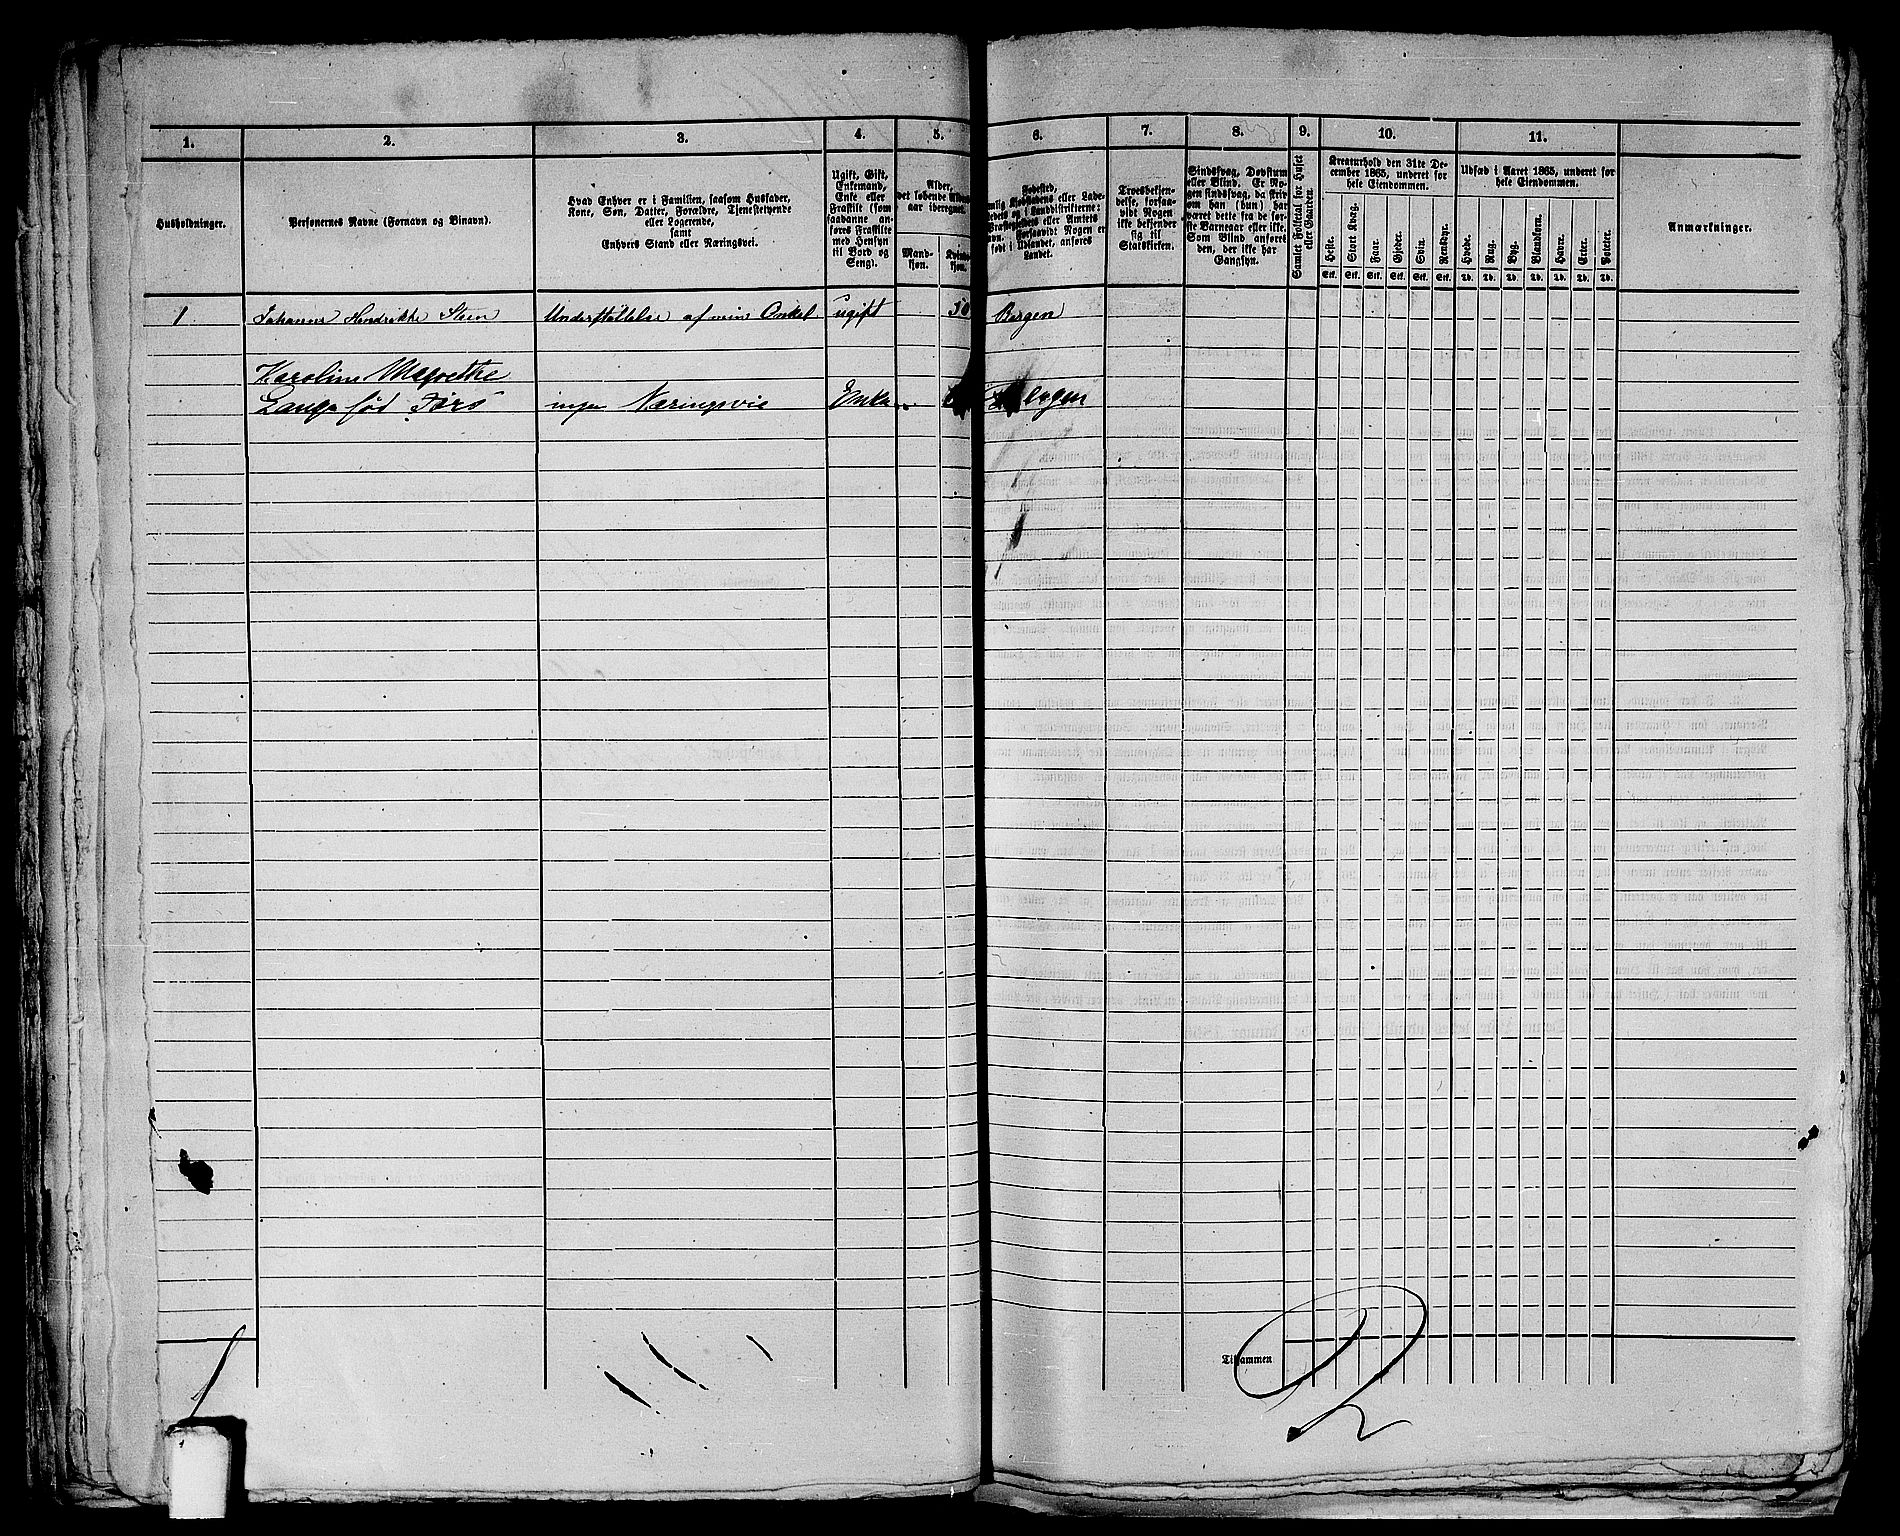 1. 2. 3. 4. 5. 6. 7. 8. 9. 10. 11.
Husholdninger.
Personernes Navne (Fornavn og Binavn).
Hvad Enhver er i Familien, saasom Husfader,
Kone, Søn, Datter, Forældre, Tjenestetyende
eller Logerende,
samt
Enhvers Stand eller Næringsvei.
Ugift, Gift,
Enkemand,
Enke eller
Fraskilt (som
saadanne an-
føres Fraskilte
med Hensyn
til Bord og
Seng).
Alder,
det løbende
aar iberegnet.
Mand-
kjøn.
Kvinde-
kjøn.
Fødested,
eller Lade-
og i Landdistrikterne:
eller Amtets
Navn. Forsaavidt Nogen er
født i Udlandet, anføres
Landet.
Troesbekjen-
delse, forsaa-
vidt Nogen
ikke bekjender
sig til
Statskirken.
Sindssvag, Døvstum
eller Blind. Er No-
gen sindssvag, da skriv
om han (hun) har
været dette fra de for-
ste Barneaar eller ikke.
Som Blind anføres
den, der ikke har
Gangsyn.
Samlet Folketal for Huset
eller Gaarden.
Kreaturhold den 31te De-
cember 1865, underet for
hele Eiendommen.
Heste. Stort Kvæg. Faar. Gjeder. Svin. Rensdyr.
Stk. Stk. Stk. Stk. Stk. Stk.
Udsæd i Aaret 1865, underet for
hele Eiendommen.
Hvede. Rug. Byg. Blandkorn. Havre. Erter. Poteter.
Td. Td. Td. Td. Td. Td. Td.
Anmærkninger.
1 Johanne Hendrikke Steen Understøttelse af min Onkel ugift 50 Bergen
Karoline Magrethe
Lange født ingen Næringsvie Enke
Tilsammen
2